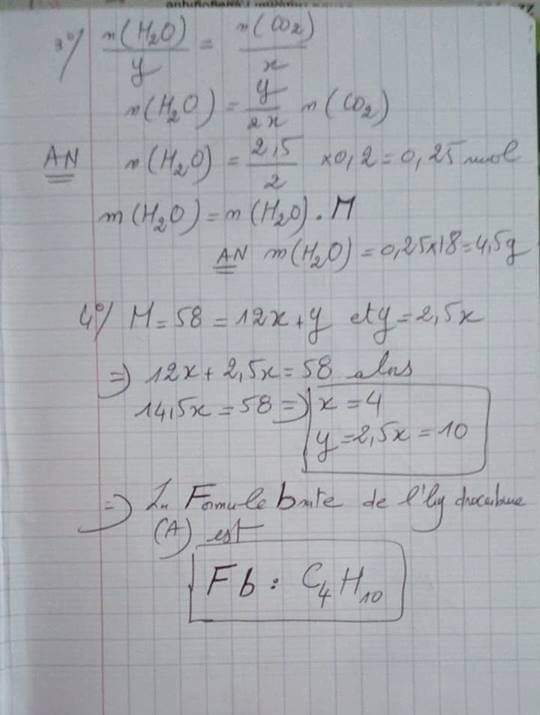 3°/ n(H₂O)/y = n(CO₂)/x
n(H₂O) = y/2x n(CO₂)
AN n(H₂O) = 2,5/2 × 0,2 = 0,25 mol
m(H₂O) = n(H₂O) . M
AN m(H₂O) = 0,25×18 = 4,5g
4°/ M = 58 = 12x + y et y = 2,5x
=> 12x + 2,5x = 58 alors
14,5x = 58 => x = 4
y = 2,5x = 10
=> La Formule brute de l'hydrocarbure
(A) est
Fb : C₄H₁₀